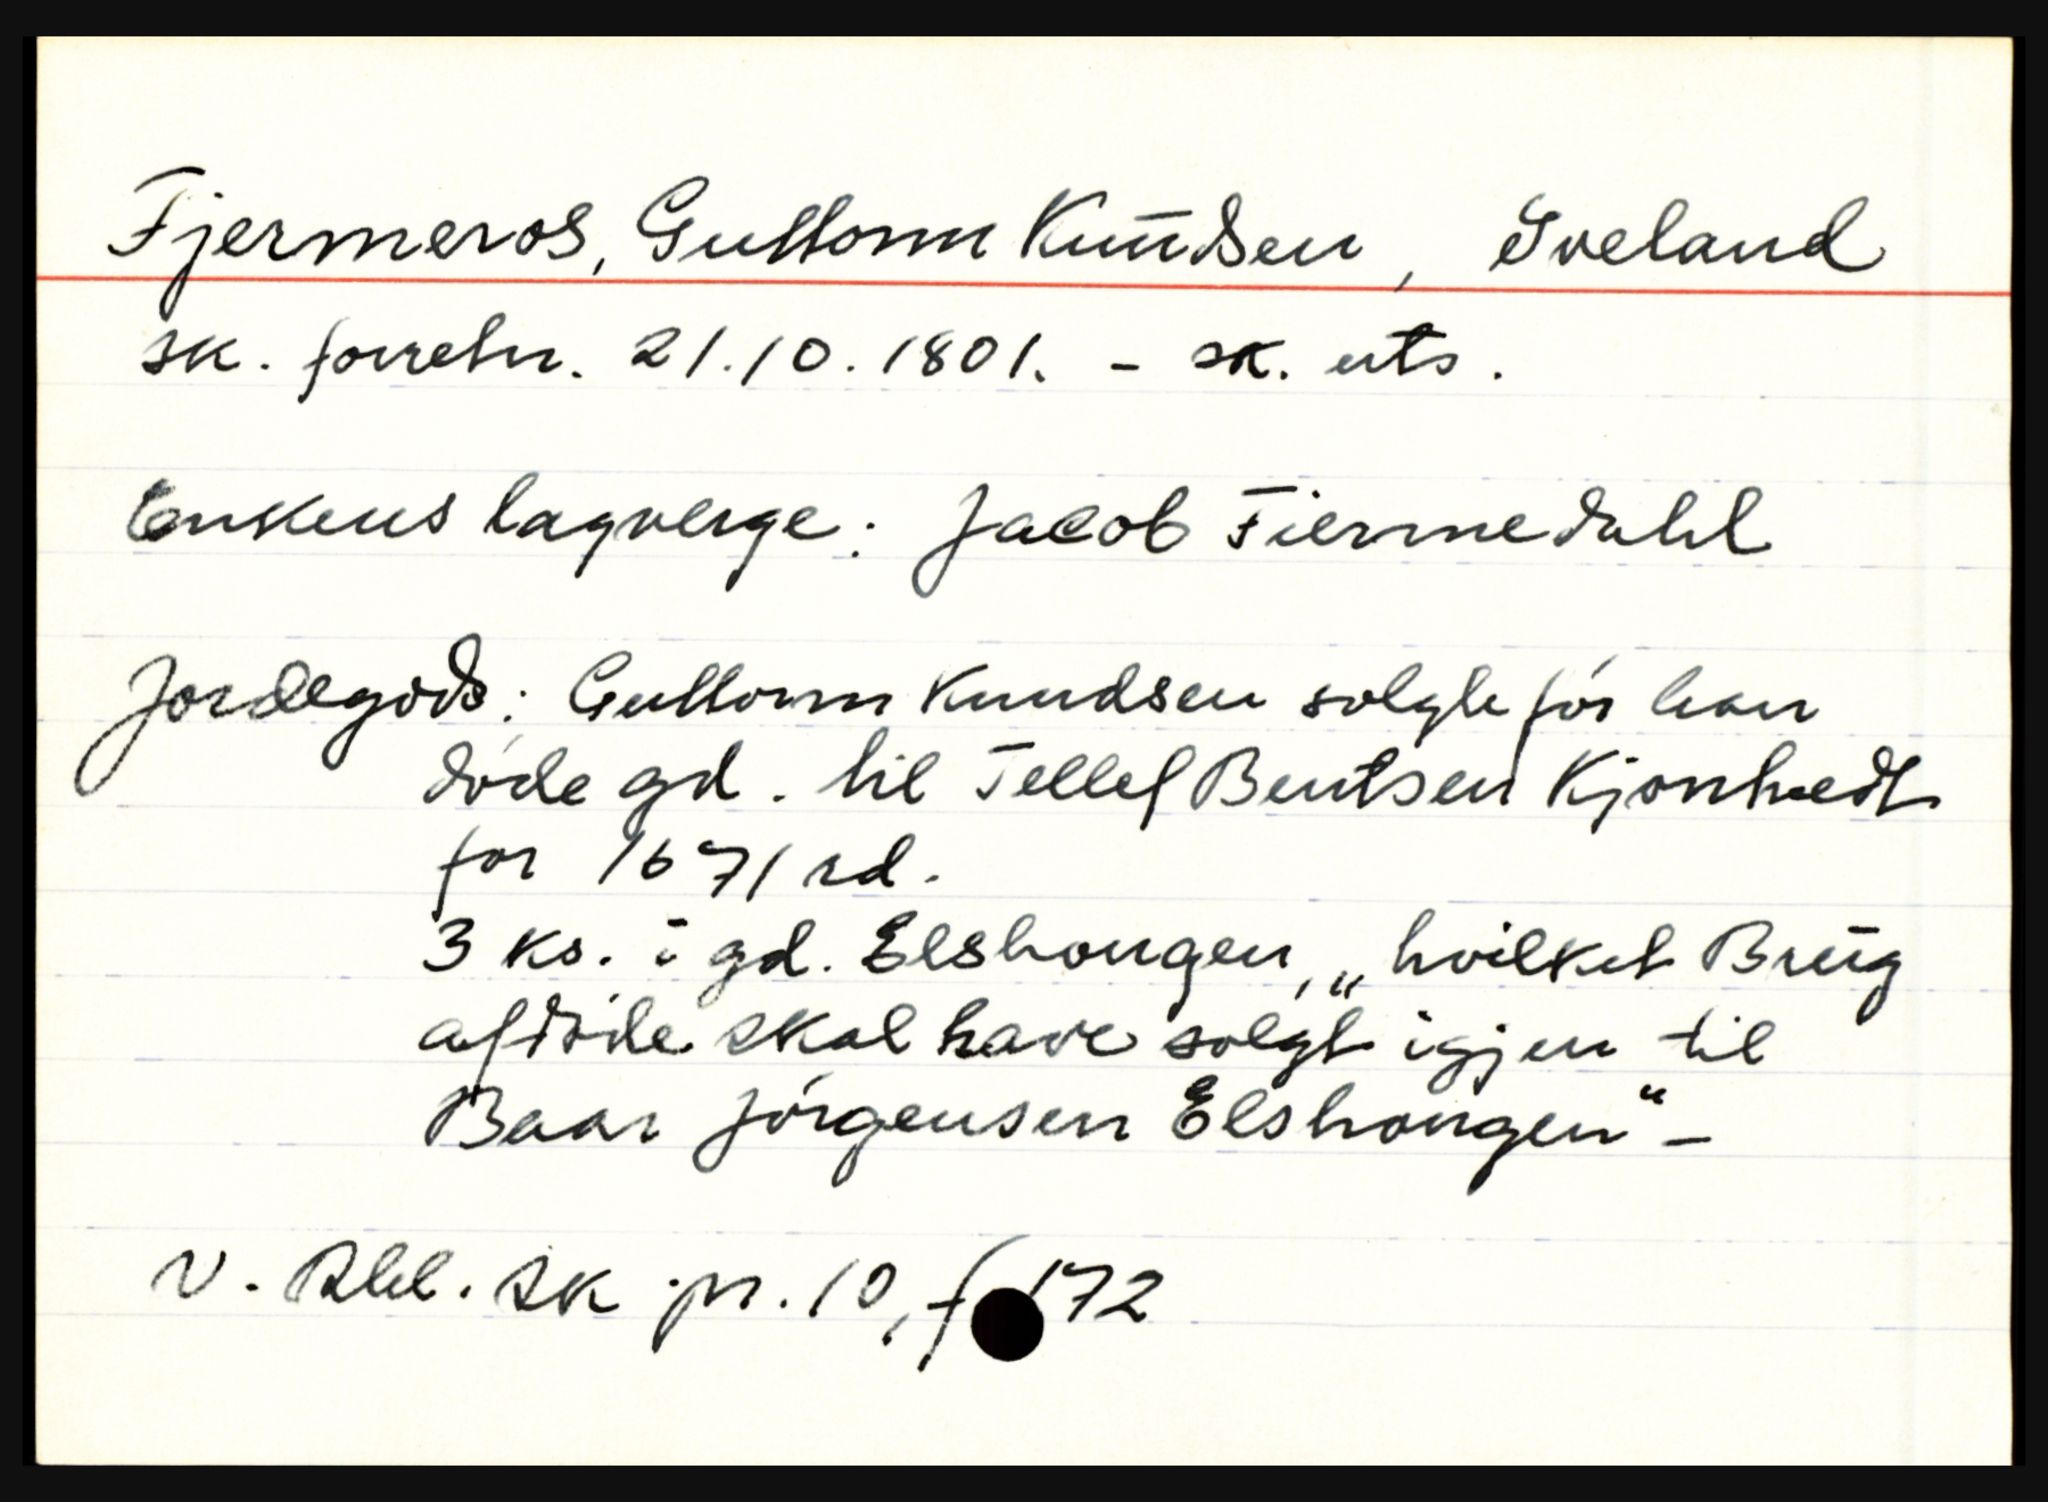 Fjermeros, Guttorm Knudsen, Iveland
sk. forretn. 21.10.1801. - sk. uts.
Enkens lagverge: Jacob Fiermedahl
Jordegods: Guttorm Knudsen solgte før han
døde gd. til Tellef Bentsen Kjonhedt
for 1671 rd.
3 ks. i gd. Elshougen, „hvilket Brug
afdøde skal have solgt igjen til
Baar Jørgensen Elshougen“ -
V. Rbl. sk pr. 10, f 172